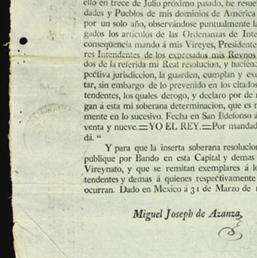 ello en trece de Julio próximo pasado, he resue
dades y Pueblos de mis dominios de América
por un solo año, observándose puntualmente la
gados los artículos de las Ordenanzas de Inte
consequencia mando á mis Vireyes, Presidente
res Intendentes de los expresados mis Reynos
dos de la referida mi Real resolucion, y hacian
pectiva jurisdiccion, la guarden, cumplan y ex
tar, sin embargo de lo prevenido en los citados
tendentes, los quales derogo, y declaro por de n
gan á esta mi soberana determinacion, que es m
mente en lo sucesivo. Fecha en San Ildefonso á
venta y nueve.=YO EL REY.=Por mandad
dá. "
Y para que la inserta soberana resolucion
publique por Bando en esta Capital y demas
Vireynato, y que se remitan exemplares á lo
tendentes y demas á quienes respectivamente
ocurran. Dado en México á 31 de Marzo de 1
Miguel Joseph de Azanza.